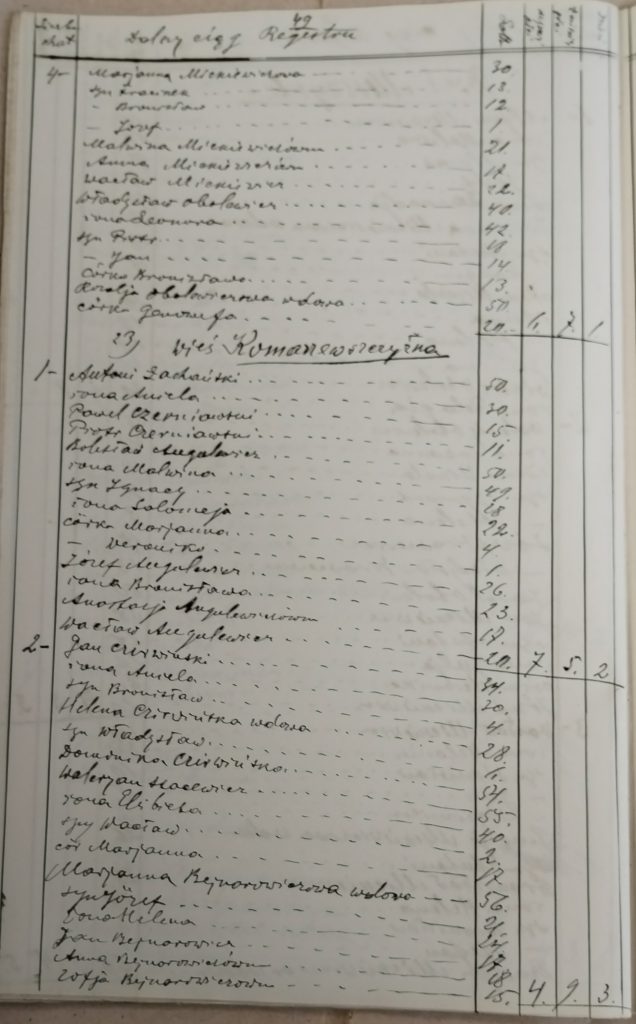 49
Liczb. chat
Dalszy ciąg Regestru
4- Marjanna Mickiewiczowa 30.
syn Franciszek 13.
- Bronisław 12.
- Józef 1
Malwina Mickiewiczówna 21.
Anna Mickiewiczówna 17.
Wacław Mickiewicz 22.
Władysław Obolewicz 40.
żona Leonora 42.
syn Piotr 18
- Jan 14
córka Bronisława 13.
Rozalja Obolewiczowa wdowa 50.
córka Genowefa 20. 6. 7. 1
23) wieś Romanowszczyzna
1- Antoni Zachański 50.
żona Aniela 30.
Paweł Czerniawski 15.
Piotr Czerniawski 11.
Bolesław Augulewicz 50.
żona Malwina 49.
syn Ignacy 28
żona Salomeja 22.
córka Marjanna 4.
- Weronika 1.
Józef Augulewicz 26.
żona Bronisława 23.
Anastazja Augulewiczówna 17.
Wacław Augulewicz 20. 7. 5. 2
2- Jan Czirwiński 34.
żona Aniela 30.
syn Bronisław 4.
Helena Czirwińska wdowa 28.
syn Władysław
Dominika Czirwińska 54.
Walerjan Stacewicz 55.
żona Elżbieta 40.
syn Wacław 2.
cór Marjanna 17
Marjanna Bejnarowiczowa wdowa 56.
syn Józef
żona Helena 24
Jan Bejnarowicz 17
Anna Bejnarowiczówna 18
Zofja Bejnarowiczówn 15. 4. 9. 3.